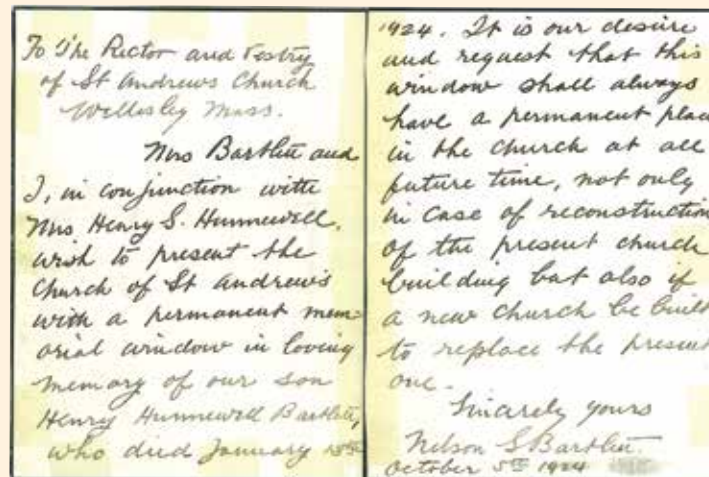 To The Rector and Vestry
of St Andrews Church
Wellesley Mass.
Mrs Bartlett and
I, in conjunction with
Mrs Henry S. Hunnewell,
wish to present the
Church of St Andrew's
with a permanent mem-
orial window in loving
memory of our son
Henry Hunnewell Bartlett,
who died January 15th
1924. It is our desire
and request that this
window shall always
have a permanent place
in the church at all
future time, not only
in case of reconstruction
of the present church
building but also if
a new church be built
to replace the present
one.
Sincerely yours
Nelson S Bartlett.
October 5th 1924